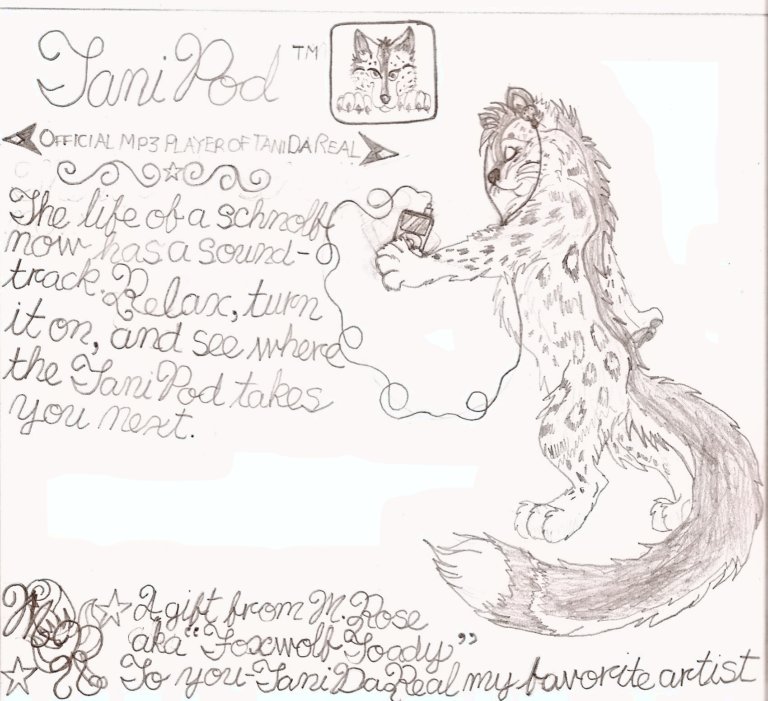 TaniPod™
OFFICIAL MP3 PLAYER OF TANIDAREAL
The life of a schnolf
now has a sound-
track. Relax, turn
it on, and see where
the TaniPod takes
you next.
A gift from M. Rose
aka "Foxwolf Toady"
To you-TaniDaReal my favorite artist